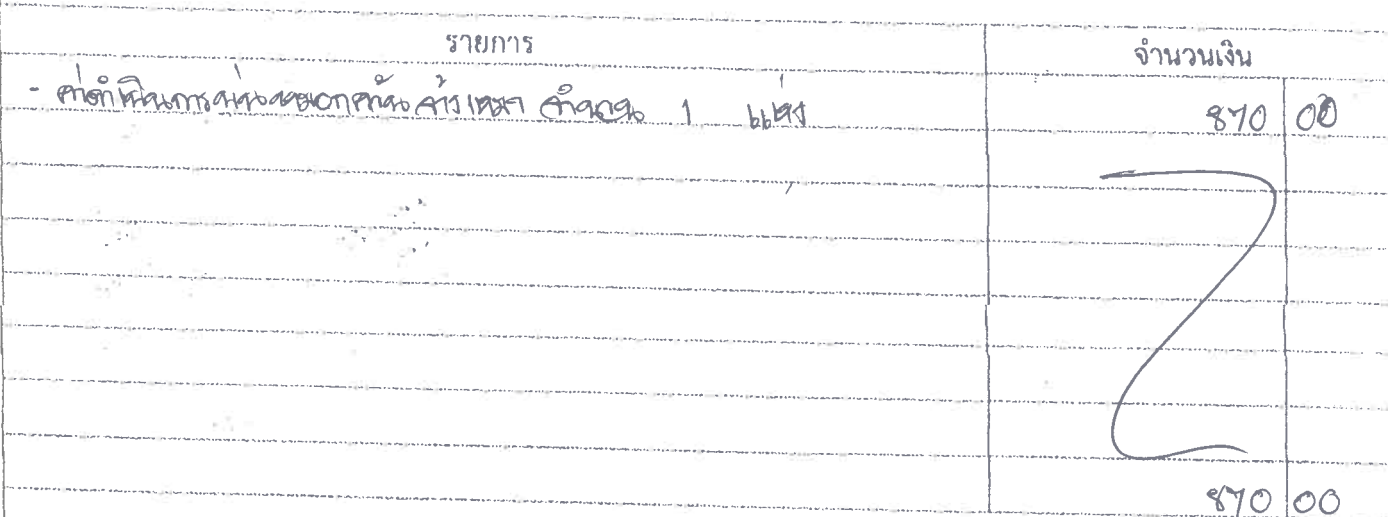 รายการ จำนวนเงิน
- ค่าดำเนินการ จ้างเหมา จำนวน 1 แห่ง 870 00
870 00